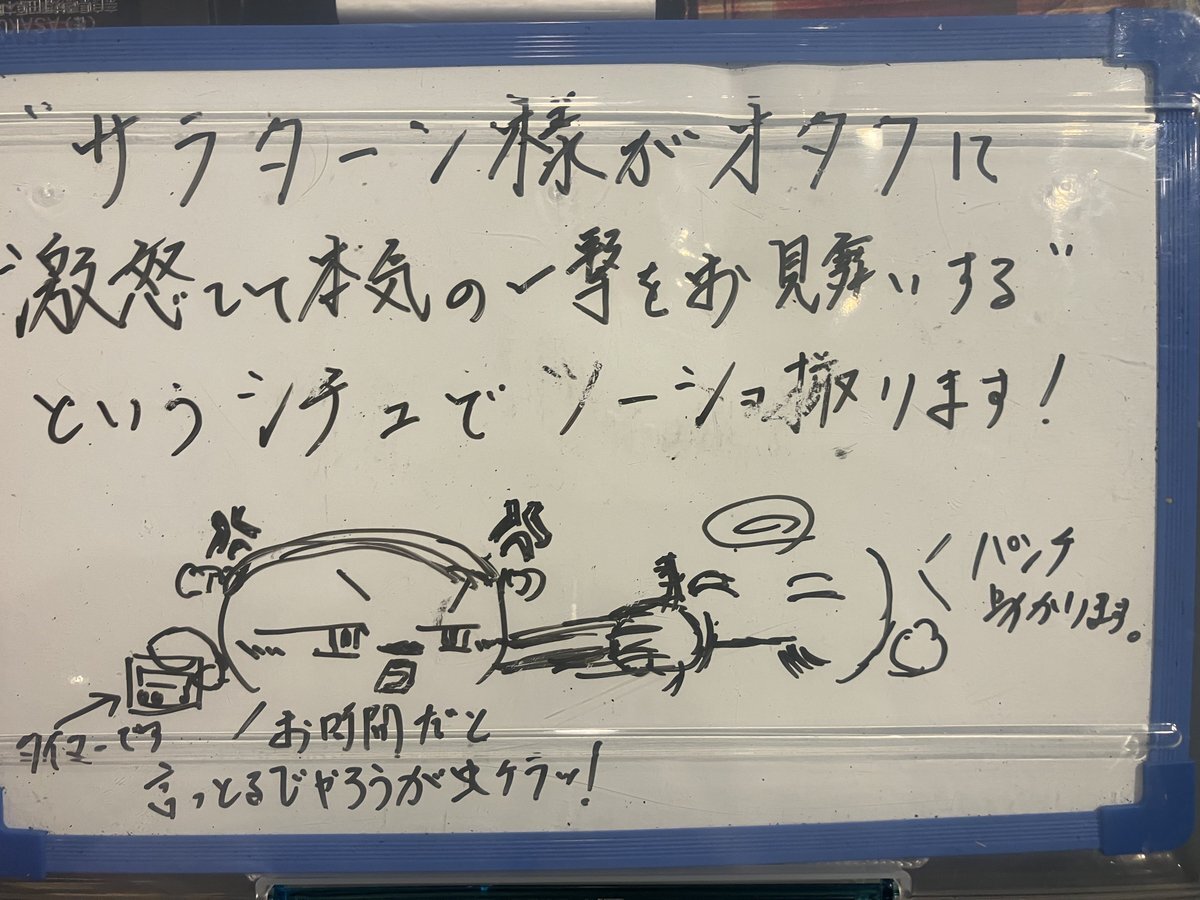 "サラターン様がオタクに
激怒して本気の一撃をお見舞いする"
というシチュでツーショ撮ります!
パンチ
助かります。
タイマーです
お時間だと
言っとるでやろうが虫ケラッ!